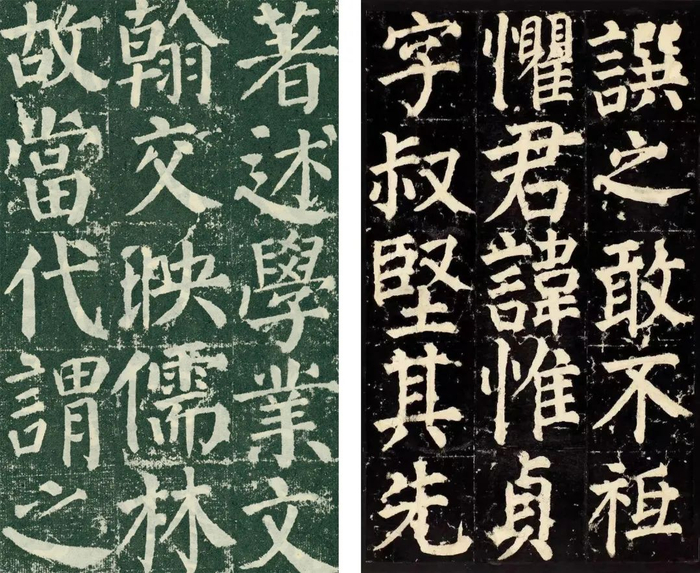 著述學業文
翰交映儒林
故當代謂之
譔之敢不祖
懼君諱惟貞
字叔堅其先